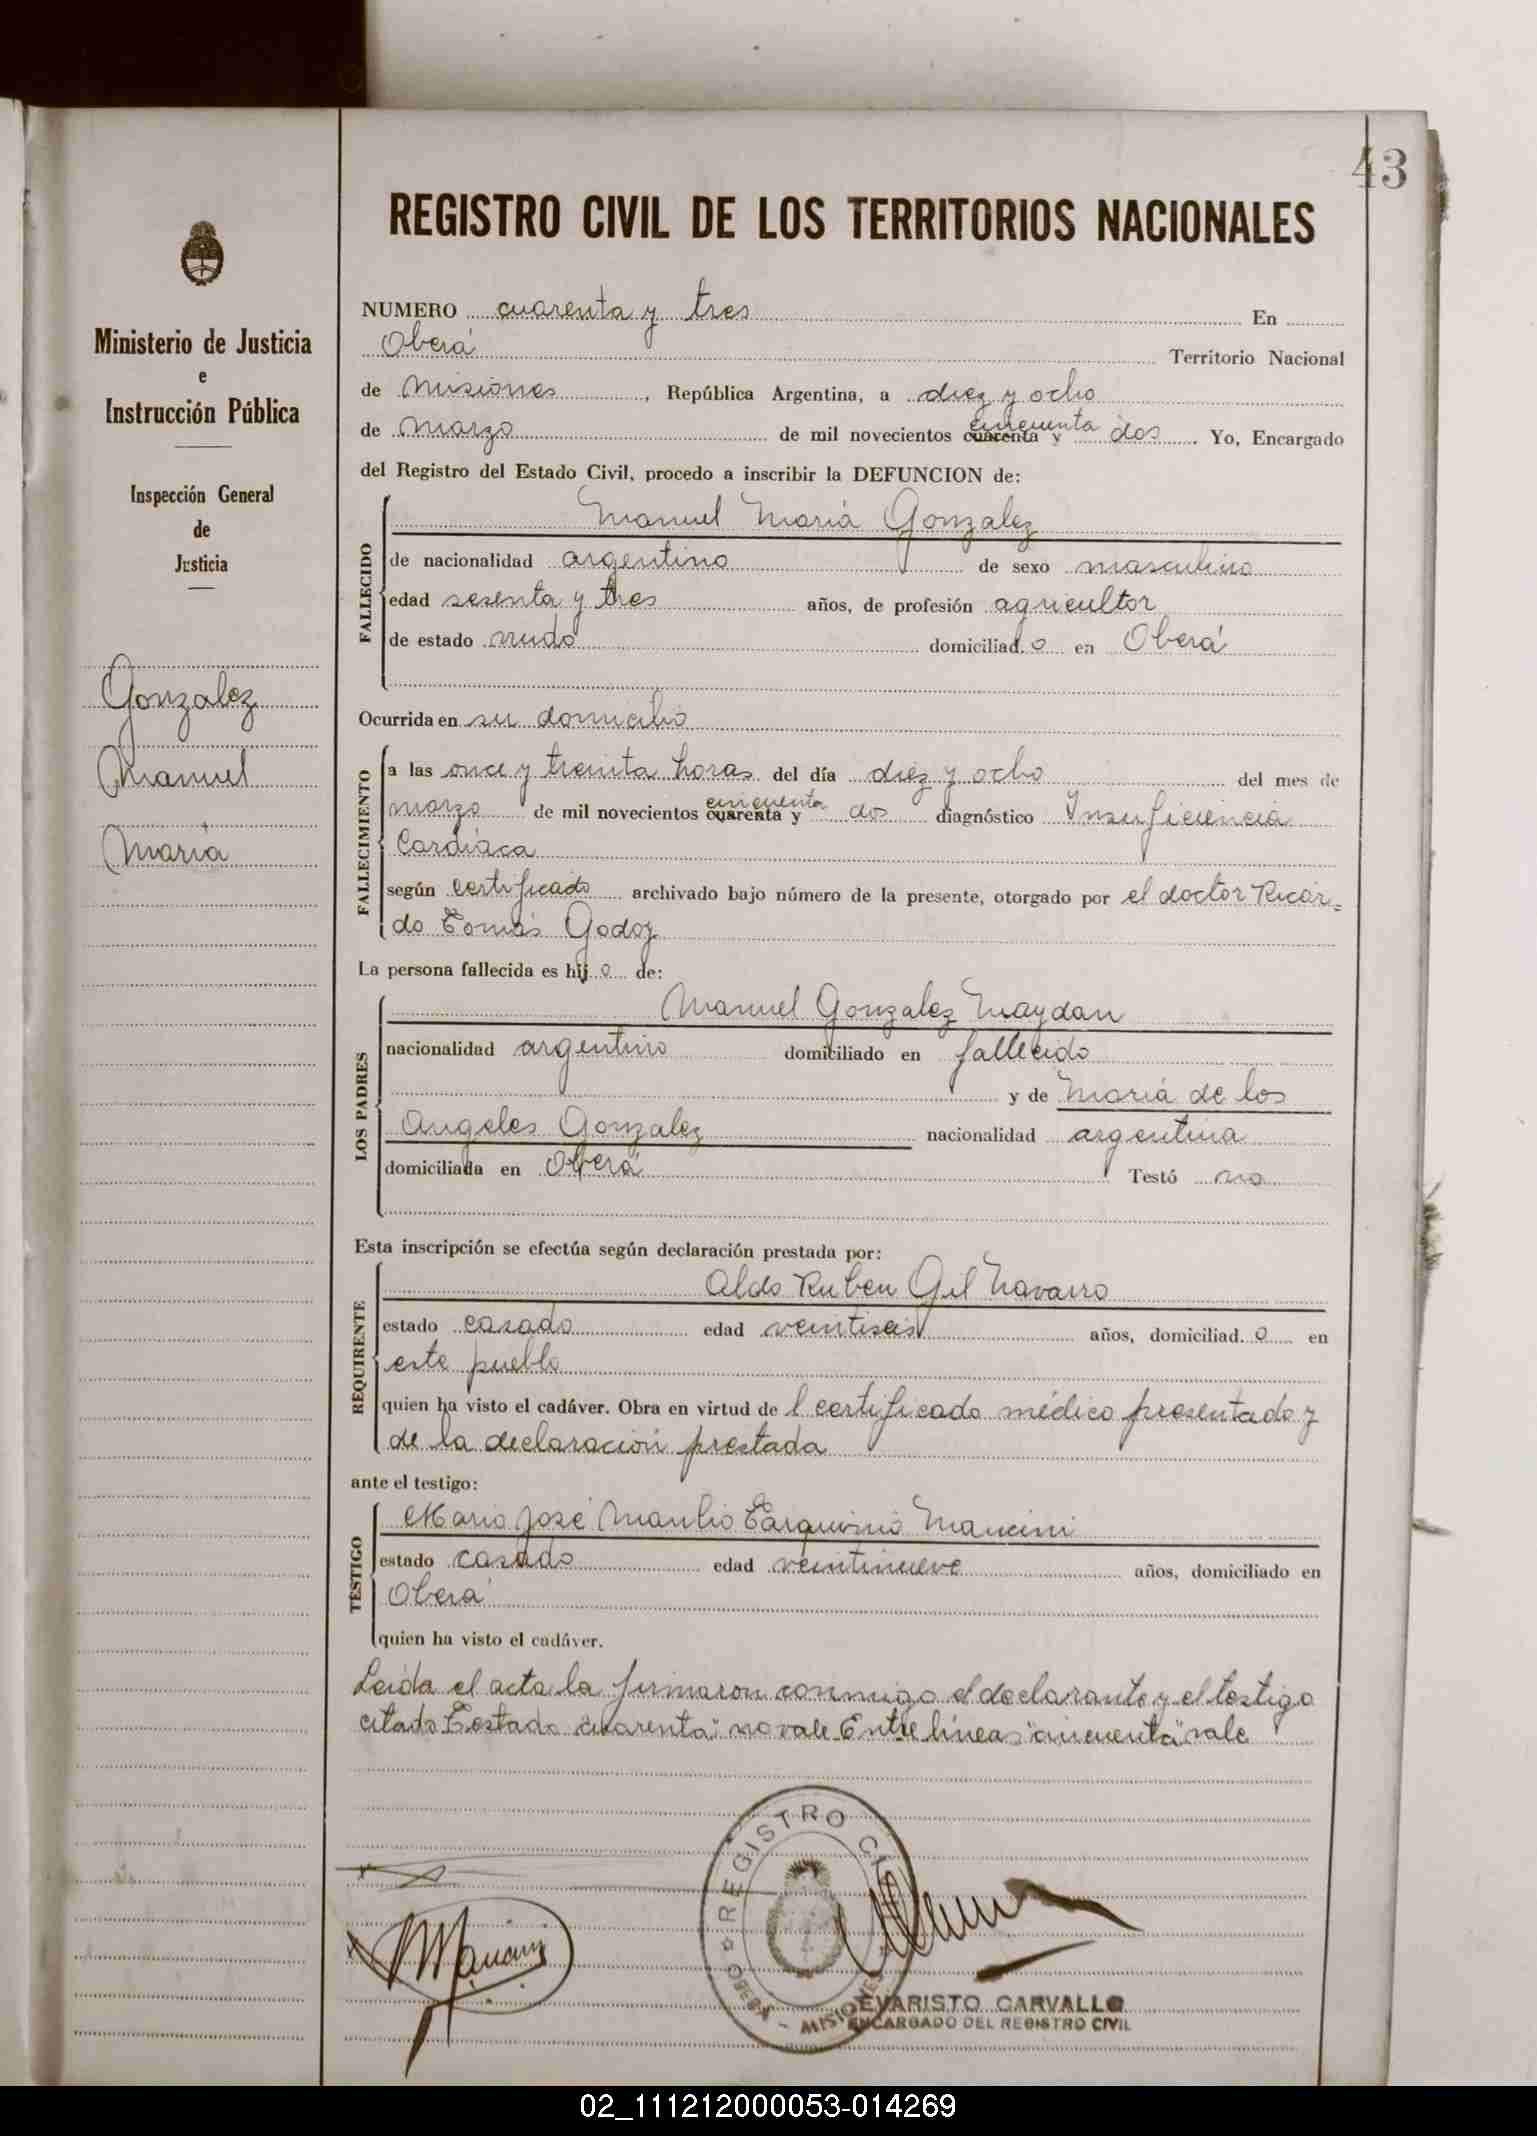 43
REGISTRO CIVIL DE LOS TERRITORIOS NACIONALES
Ministerio de Justicia
e
Instrucción Pública
Inspección General
de
Justicia
Gonzalez
Manuel
Maria
NUMERO cuarenta y tres En
Oberá Territorio Nacional
de Misiones, República Argentina, a diez y ocho
de Marzo de mil novecientos cuarenta cincuenta y dos. Yo, Encargado
del Registro del Estado Civil, procedo a inscribir la DEFUNCION de:
FALLECIDO
Manuel Maria Gonzalez
de nacionalidad argentino de sexo masculino
edad sesenta y tres años, de profesión agricultor
de estado viudo domiciliad o en Oberá
Ocurrida en su domicilio
FALLECIMIENTO
a las once y treinta horas del día diez y ocho del mes de
marzo de mil novecientos cuarenta cincuenta y dos diagnóstico Insuficiencia
Cardiaca
según certificado archivado bajo número de la presente, otorgado por el doctor Ricar=
do Tomás Godoy
La persona fallecida es hij o de:
LOS PADRES
Manuel Gonzalez Maydan
nacionalidad argentino domiciliado en fallecido
y de Maria de los
Angeles Gonzalez nacionalidad argentina
domiciliada en Oberá Testó no
Esta inscripción se efectúa según declaración prestada por:
REQUIRENTE
Aldo Ruben Gil Navarro
estado casado edad veintiseis años, domiciliad o en
este pueblo
quien ha visto el cadáver. Obra en virtud de l certificado médico presentado y
de la declaración prestada
ante el testigo:
TESTIGO
Mario José Manlio Tarquinio Mancini
estado casado edad veintinueve años, domiciliado en
Oberá
quien ha visto el cadáver.
Leida el acta la firmaron conmigo el declarante y el testigo
citado Testado "cuarenta" no vale Entre lineas "cincuenta" vale
REGISTRO CIVIL
MISIONES
MMancini
EVARISTO CARVALLO
ENCARGADO DEL REGISTRO CIVIL
02_111212000053-014269